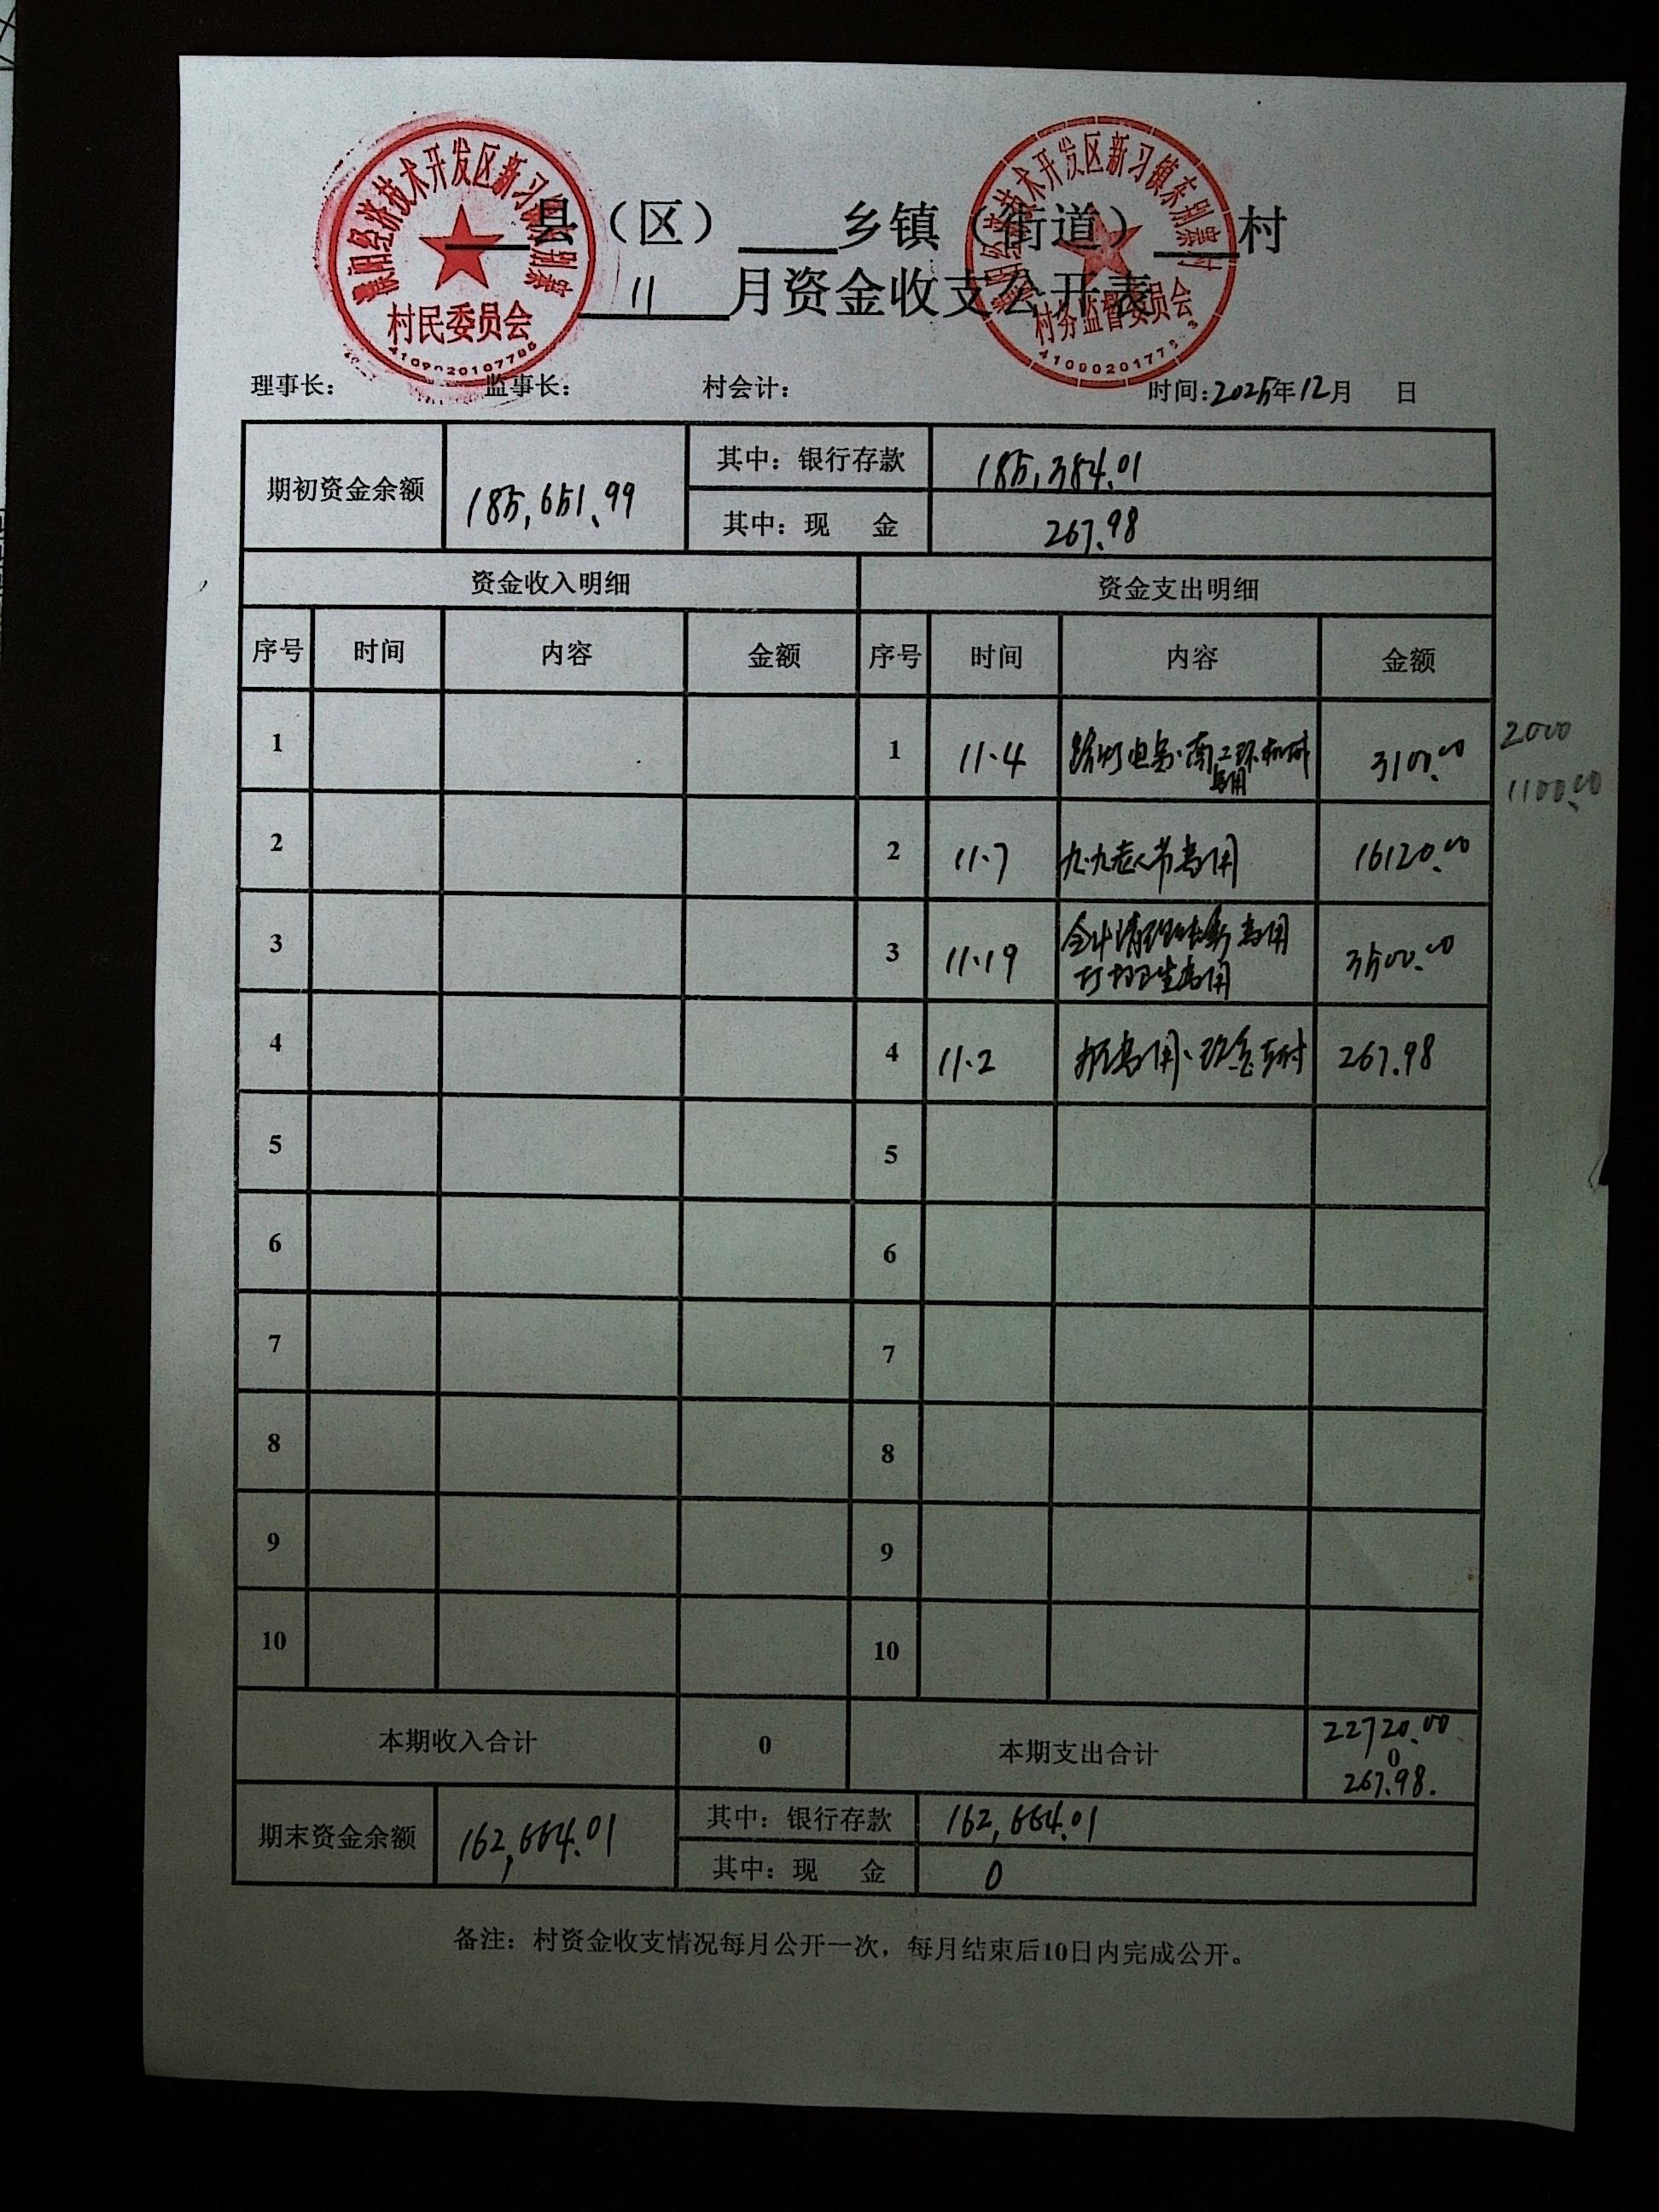 濮阳经济技术开发区新习镇东别寨
村民委员会
4109020107785
濮阳经济技术开发区新习镇东别寨村
村务监督委员会
县（区） 乡镇（街道） 村
11 月资金收支公开表
理事长： 监事长： 村会计： 时间：2025年12月 日
期初资金余额 185,651.99 其中：银行存款 185,384.01
其中：现 金 267.98
资金收入明细 资金支出明细
序号 时间 内容 金额 序号 时间 内容 金额
1 1 11.4 路灯电费.南二环机械费用 3100.00 2000
1100.00
2 2 11.7 九.九老人节费用 16120.00
3 3 11.19 会计清理账务费用
打扫卫生费用 3500.00
4 4 11.2 费用、现金支付 267.98
5 5
6 6
7 7
8 8
9 9
10 10
本期收入合计 0 本期支出合计 22720.00
0
267.98.
期末资金余额 162,664.01 其中：银行存款 162,664.01
其中：现 金 0
备注：村资金收支情况每月公开一次，每月结束后10日内完成公开。